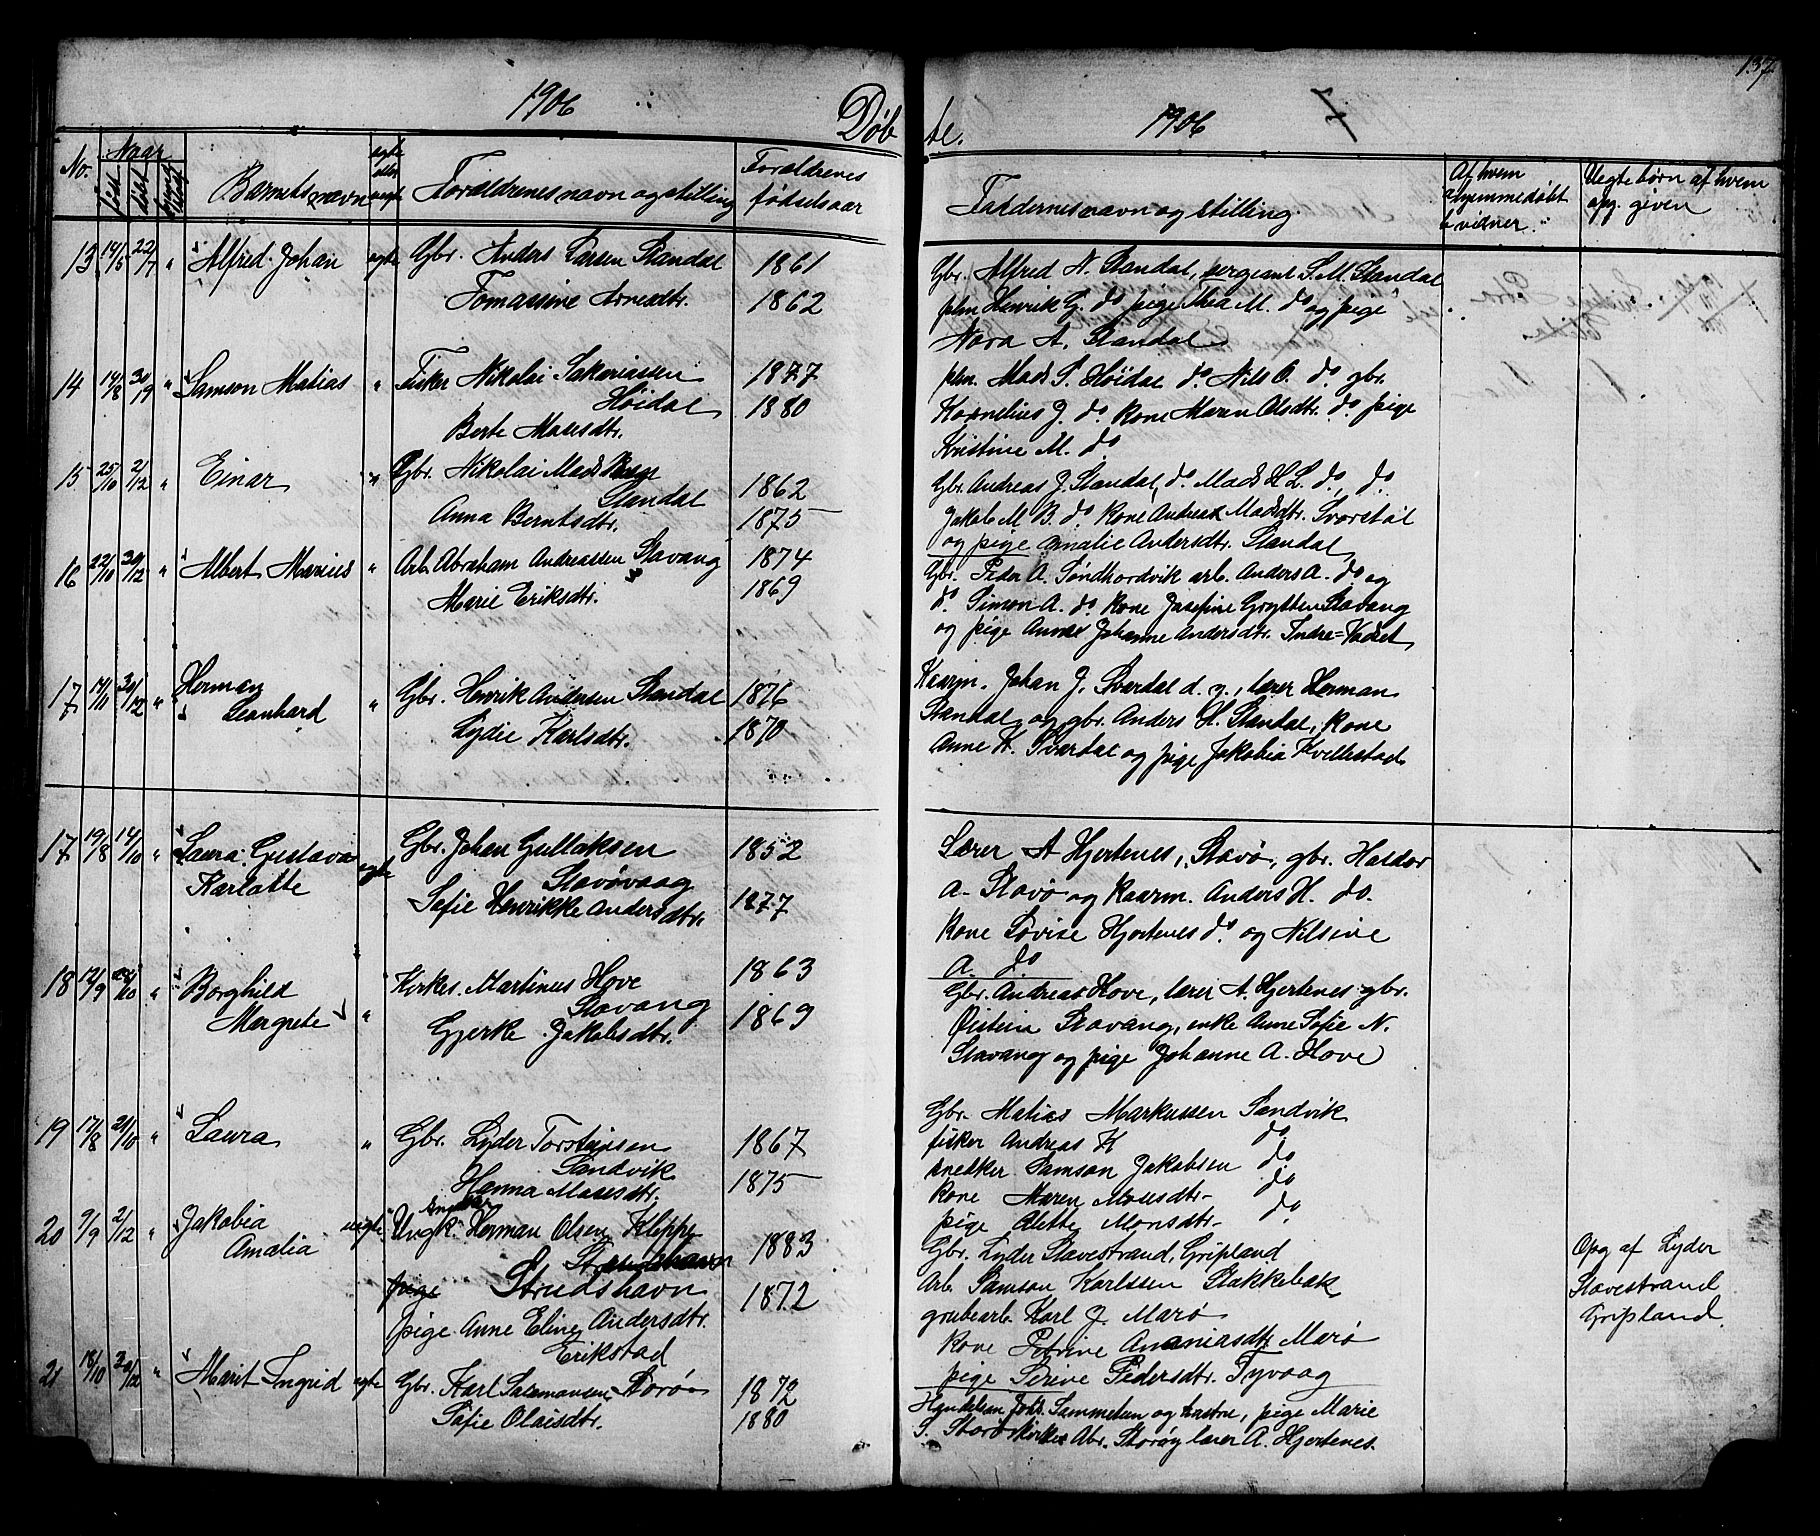 1906
Døb
te.
1906
7
137
No.
Naar
født
døbt
Barnets navn
ægte
eller
uægte
Forældrenes navn og stilling
Forældrenes
fødselsaar
Faddernes navn og stilling.
Af hvem
hjemmedøbt
vidner.
Uegte børn af hvem
opg. given
13 14/5 22/7 " Alfred Johan ægte Gbr. Anders Larsen Standal 1861
Tomassine Arnesdtr. 1862
Gbr. Alfred N. Standal, sergeant S. M. Standal
plm Henrik G. do pige Thea M. do og pige
Nora A. Standal
14 14/8 30/9 " Samson Matias " Fisker Nikolai Sakariassen 1877
Høidal 1880
Berte Mosesdtr.
plm. Mads S. Høidal do. Nils O. do. gbr.
Kornelius J. do kone Maren Olsdtr. do pige
Kristine M. do
15 25/10 2/12 " Einar " Gbr. Nikolai Mads
Standal 1862
Anna Berntsdtr. 1875
Gbr. Andreas J. Standal, do. Mads H L. do, do.
Jakob M B. do. kone Andrea Madsdtr. Svorstøl
og pige Amalie Andersdtr. Standal
16 22/10 30/12 " Albert Marius " Arb. Abraham Andreassen Stavang 1874
Marie Eriksdtr. 1869
Gbr. Peder A. Søndhordvik arb. Anders A. do og
do. Simon A. do kone Josefine Grytten Stavang
og pige Anna Johanne Andersdtr. Indre=Vadset
17 14/11 30/12 " Herman " Gbr. Henrik Andersen Standal 1876
Leonhard Lydie Karlsdtr. 1870
Kaarm. Johan J. Svardal d. y., lærer Herman
Standal og gbr. Anders H. Standal, kone
Anne K. Svardal og pige Jakobia Kvellestad
17 19/8 14/10 " Laura Gustava ægte Gbr. Johan Gullaksen 1852
Karlotte Stavøvaag
Sofie Henrikke Andersdtr. 1877
Lærer A Hjertenes, Stavø, gbr. Haldor
A. Stavø og kaarm. Anders H. do.
kone Lovise Hjertenes do og Nilsine
A. do
18 12/9 28/10 " Borghild Kirkes. Martinus Hove 1863
Margrete " Stavang
Gjerke Jakobsdtr. 1869
Gbr. Andreas Hove, lærer A. Hjertenes gbr.
Øistein Stavang, enke Anne Sofie N.
Stavang og pige Johanne A. Hove
19 17/8 21/10 " Laura " Gbr. Lyder Torstensen 1867
Sandvik
Hanna Mosesdtr. 1875
Gbr. Matias Markussen Sandvik
fisker Andreas K do
snedker Samson Jakobsen do
kone Maren Monsdtr. do
pige Alette Monsdtr. do
20 9/9 2/12 " Jakobia uægte Ungk. Herman Olsen Kleppe 1883
Amalia
pige Strudshavn 1872
pige Anne Eline Andersdtr.
Erikstad
Gbr. Lyder Stavestrand, Gripland
Arb. Samson Karlssen Stakkebak
grubearb. Karl J. Marø
kone Petrine Ananiasdtr Marø
pige Serine Pedersdtr. Tyvaag
Opg af Lyder
Stavestrand
Gripland.
21 18/10 30/12 " Marit Ingrid ægte Gbr. Karl Salamonsen Storø 1872
Sofie Olaisdtr. 1880
Handelsm. Johs. Sammelsen og hustru, pige Marie
S. Storø kirkes Abr. Storøy lærer A. Hjertenes.